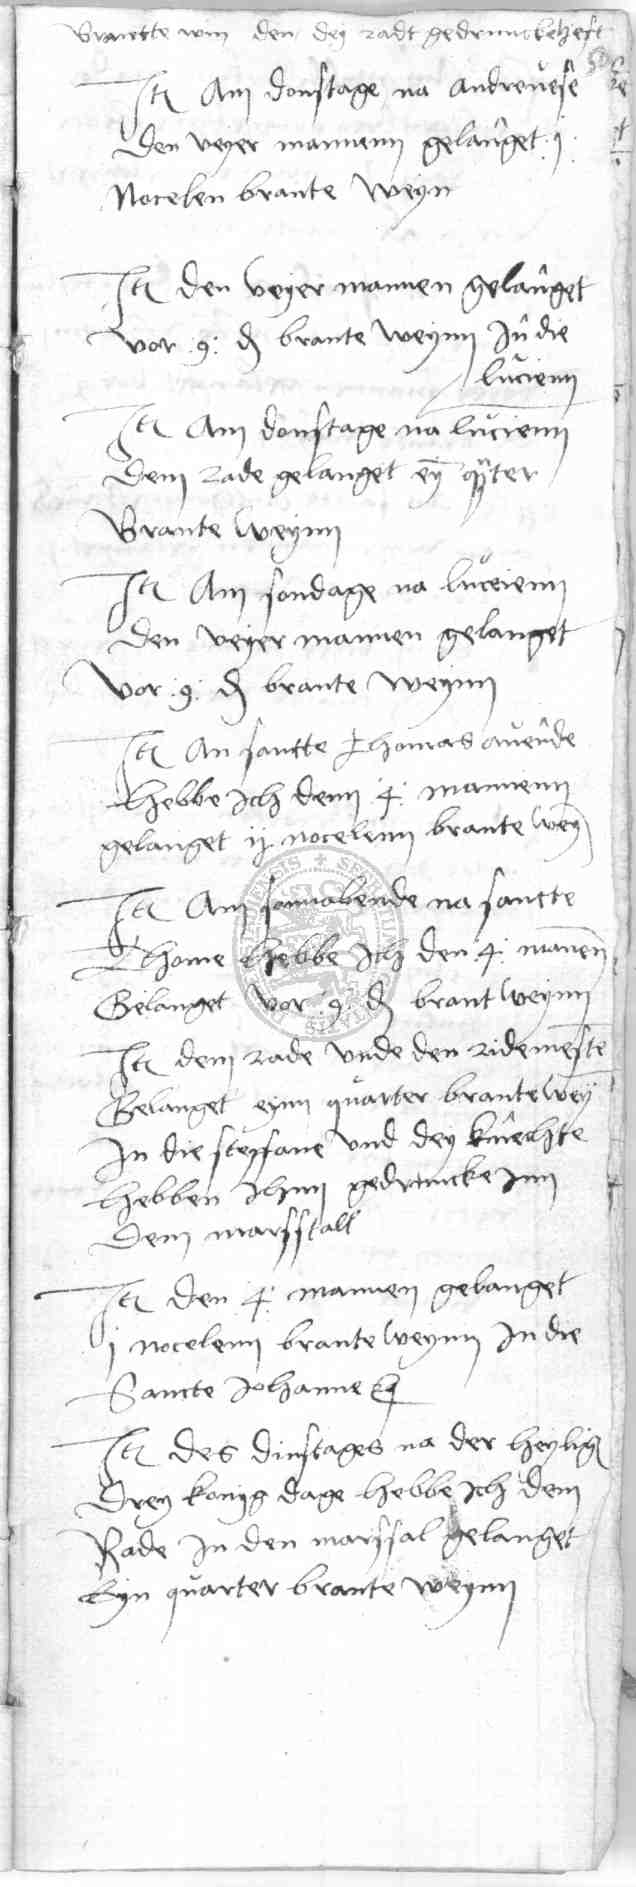 Brantte win den dey radt gedruncke heft
Itē Am donstage na andrewese
den veyer mannenn gelanget j
Nocelen brante weyn
Itē den veyer mannen gelanget
vor 9 ₰ brante weynn In die
lucienn
Itē Am donstage na lucienn
dem rade gelanget eyn quarter
Brante weynn
Itē Am sondage na lucienn
den veyer mannen gelanget
vor 9 ₰ brante weynn
Itē An santte Thomas auende
Hebbe Ich denn 4 mannenn
gelanget ij nocelenn brante weyn
Itē Am sonnabende na sancte
Thome hebbe Ich den 4 mannen
Gelanget vor 9 ₰ brant weynn
Itē dem rade vnde den ridemeste
Gelanget eynn quarter brante wey
In die steffane vnd dey knechte
hebben Ihnn gedruncke Inn
dem marsstall
Itē den 4 mannen gelanget
j nocelenn brante weynn In die
Sancte Johanne
Itē des dinstages na der heylig
drey konyg dage hebbe Ich dem
Rade In den marssal gelanget
Eyn quarter brante weynn